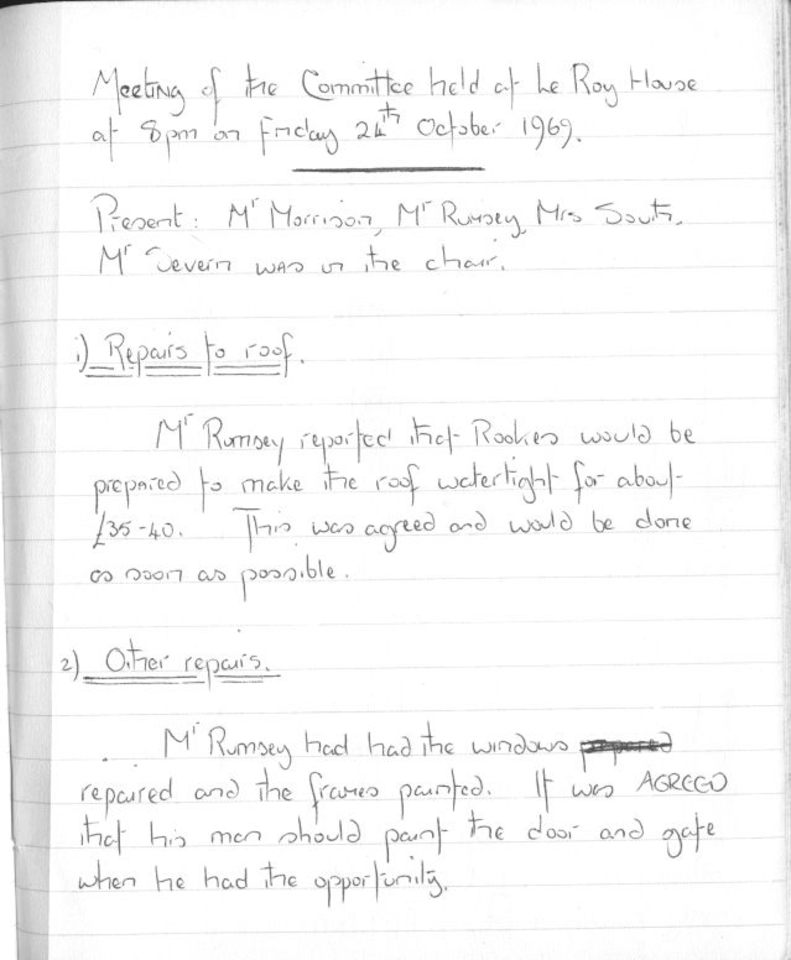 Meeting of the Committee held at Le Roy House
at 8pm on Friday 24th October 1969.
Present: Mr Morrison, Mr Rumsey, Mrs South.
Mr Severn was in the chair.
1) Repairs to roof.
Mr Rumsey reported that Rookes would be
prepared to make the roof watertight for about
£35-40. This was agreed and would be done
as soon as possible.
2) Other repairs.
Mr Rumsey had had the windows
repaired and the frames painted. It was AGREED
that his man should paint the door and gate
when he had the opportunity.